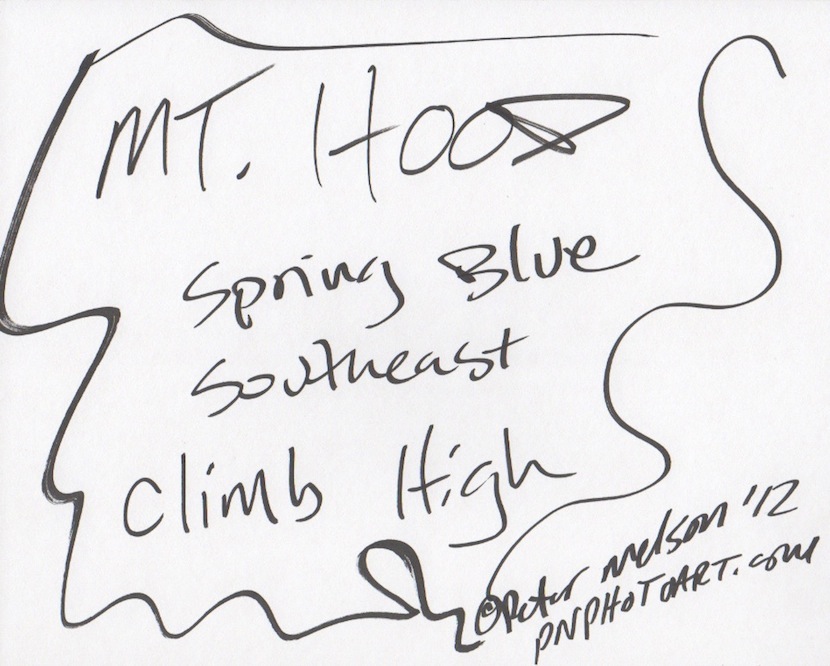 MT. HOOD
Spring Blue
Southeast
Climb High
©Peter Nelson '12
PNPHOTOART.com